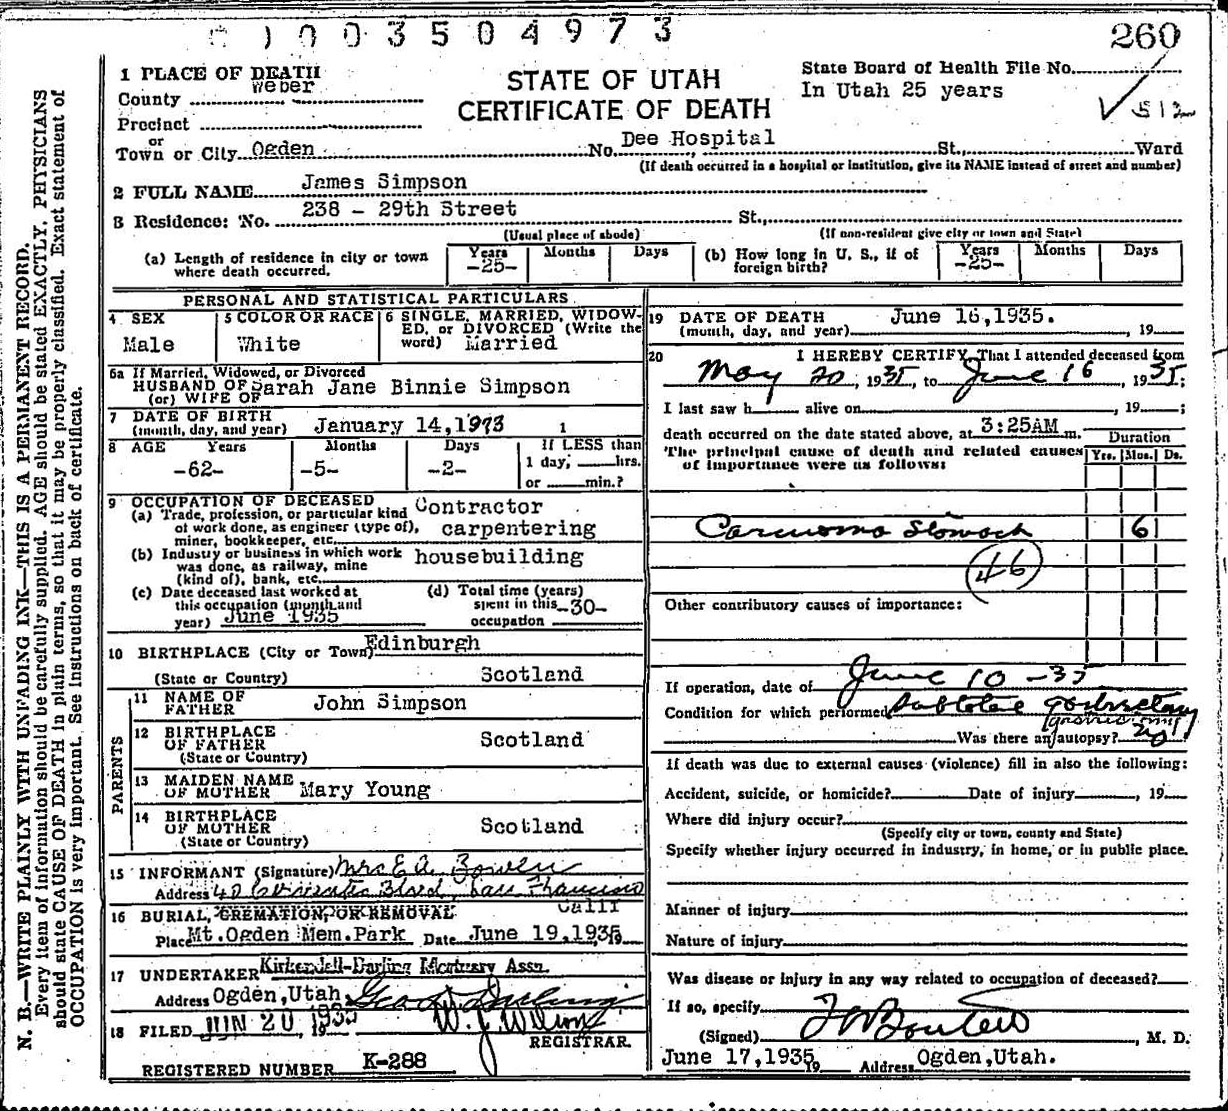 0 0 3 5 0 4 9 7 3
260
1 PLACE OF DEATH
County Weber
Precinct
or
Town or City Ogden No. Dee Hospital St., Ward
(If death occurred in a hospital or institution, give its NAME instead of street and number)
STATE OF UTAH
CERTIFICATE OF DEATH
State Board of Health File No.
In Utah 25 years
2 FULL NAME James Simpson
3 Residence: No. 238 - 29th Street St.,
(Usual place of abode) (If non-resident give city or town and State)
(a) Length of residence in city or town where death occurred. Years -25- Months Days
(b) How long in U. S., if of foreign birth? Years -25- Months Days
PERSONAL AND STATISTICAL PARTICULARS
4 SEX Male
5 COLOR OR RACE White
6 SINGLE, MARRIED, WIDOWED, or DIVORCED (Write the word) Married
6a If Married, Widowed, or Divorced
HUSBAND OF Sarah Jane Binnie Simpson
(or) WIFE OF
7 DATE OF BIRTH
(month, day, and year) January 14,1873 1
8 AGE Years -62- Months -5- Days -2- If LESS than 1 day, hrs. or min.?
9 OCCUPATION OF DECEASED
(a) Trade, profession, or particular kind of work done, as engineer (type of), miner, bookkeeper, etc. Contractor carpentering
(b) Industry or business in which work was done, as railway, mine (kind of), bank, etc. housebuilding
(c) Date deceased last worked at this occupation (month and year) June 1935
(d) Total time (years) spent in this occupation -30-
10 BIRTHPLACE (City or Town) Edinburgh
(State or Country) Scotland
PARENTS
11 NAME OF FATHER John Simpson
12 BIRTHPLACE OF FATHER Scotland
(State or Country)
13 MAIDEN NAME OF MOTHER Mary Young
14 BIRTHPLACE OF MOTHER Scotland
(State or Country)
15 INFORMANT (Signature) Mrs E A Bowen
Address San Francisco Calif
16 BURIAL, CREMATION, OR REMOVAL
Place Mt.Ogden Mem.Park Date June 19,1935 19
17 UNDERTAKER Kirkendell-Darling Mortuary Assn.
Address Ogden,Utah.
18 FILED JUN 20 1935 19 W. J. Wilson
REGISTRAR.
REGISTERED NUMBER K-288
19 DATE OF DEATH
(month, day, and year) June 16,1935. , 19
20 I HEREBY CERTIFY, That I attended deceased from
May 20, 1935, to June 16, 1935;
I last saw h alive on , 19 ;
death occurred on the date stated above, at 3:25AM m.
The principal cause of death and related causes of importance were as follows:
Duration
Yrs. Mos. Ds.
Carcinoma Stomach 6
46
Other contributory causes of importance:
If operation, date of June 10 -35
Condition for which performed Subtotal
Was there an autopsy? no
If death was due to external causes (violence) fill in also the following:
Accident, suicide, or homicide? Date of injury , 19
Where did injury occur?
(Specify city or town, county and State)
Specify whether injury occurred in industry, in home, or in public place.
Manner of injury
Nature of injury
Was disease or injury in any way related to occupation of deceased?
If so, specify
(Signed) , M. D.
June 17,1935 19 Address Ogden,Utah.
N. B.—WRITE PLAINLY WITH UNFADING INK—THIS IS A PERMANENT RECORD.
Every item of information should be carefully supplied. AGE should be stated EXACTLY. PHYSICIANS
should state CAUSE OF DEATH in plain terms, so that it may be properly classified. Exact statement of
OCCUPATION is very important. See instructions on back of certificate.